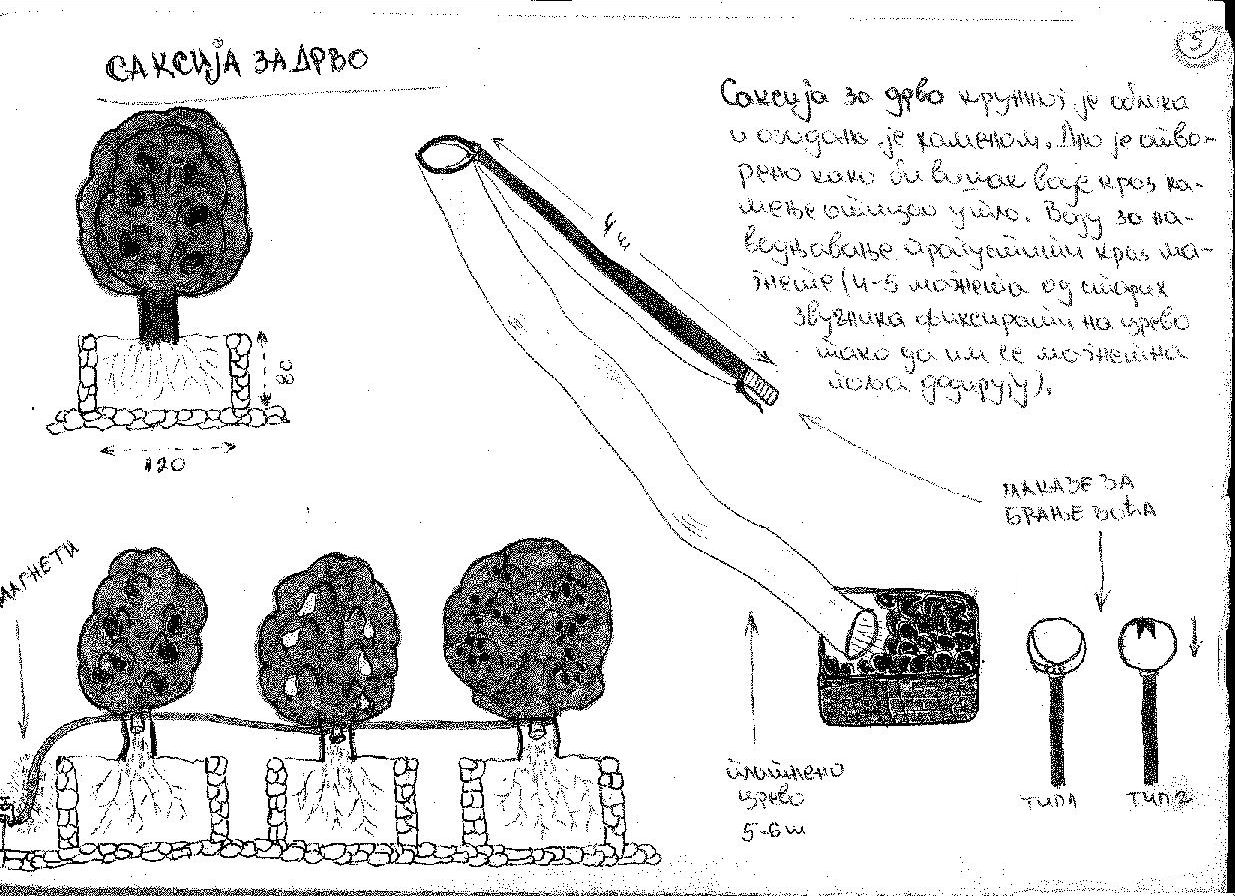 5
САКСИЈА ЗА ДРВО
Саксија за дрво кружног је облика
и озидана је каменом. Дно је отво-
рено како би вишак воде кроз ка-
мење отицао у тло. Воду за на-
водњавање пропустити кроз маг-
нете (4-5 магнета од старих
звучника фиксирати на црево
тако да им се магнетна
поља додирују).
4 м
80
120
МАКАЗЕ ЗА
БРАЊЕ ВОЋА
МАГНЕТИ
платнено
црево
5-6 м
ТИП 1
ТИП 2